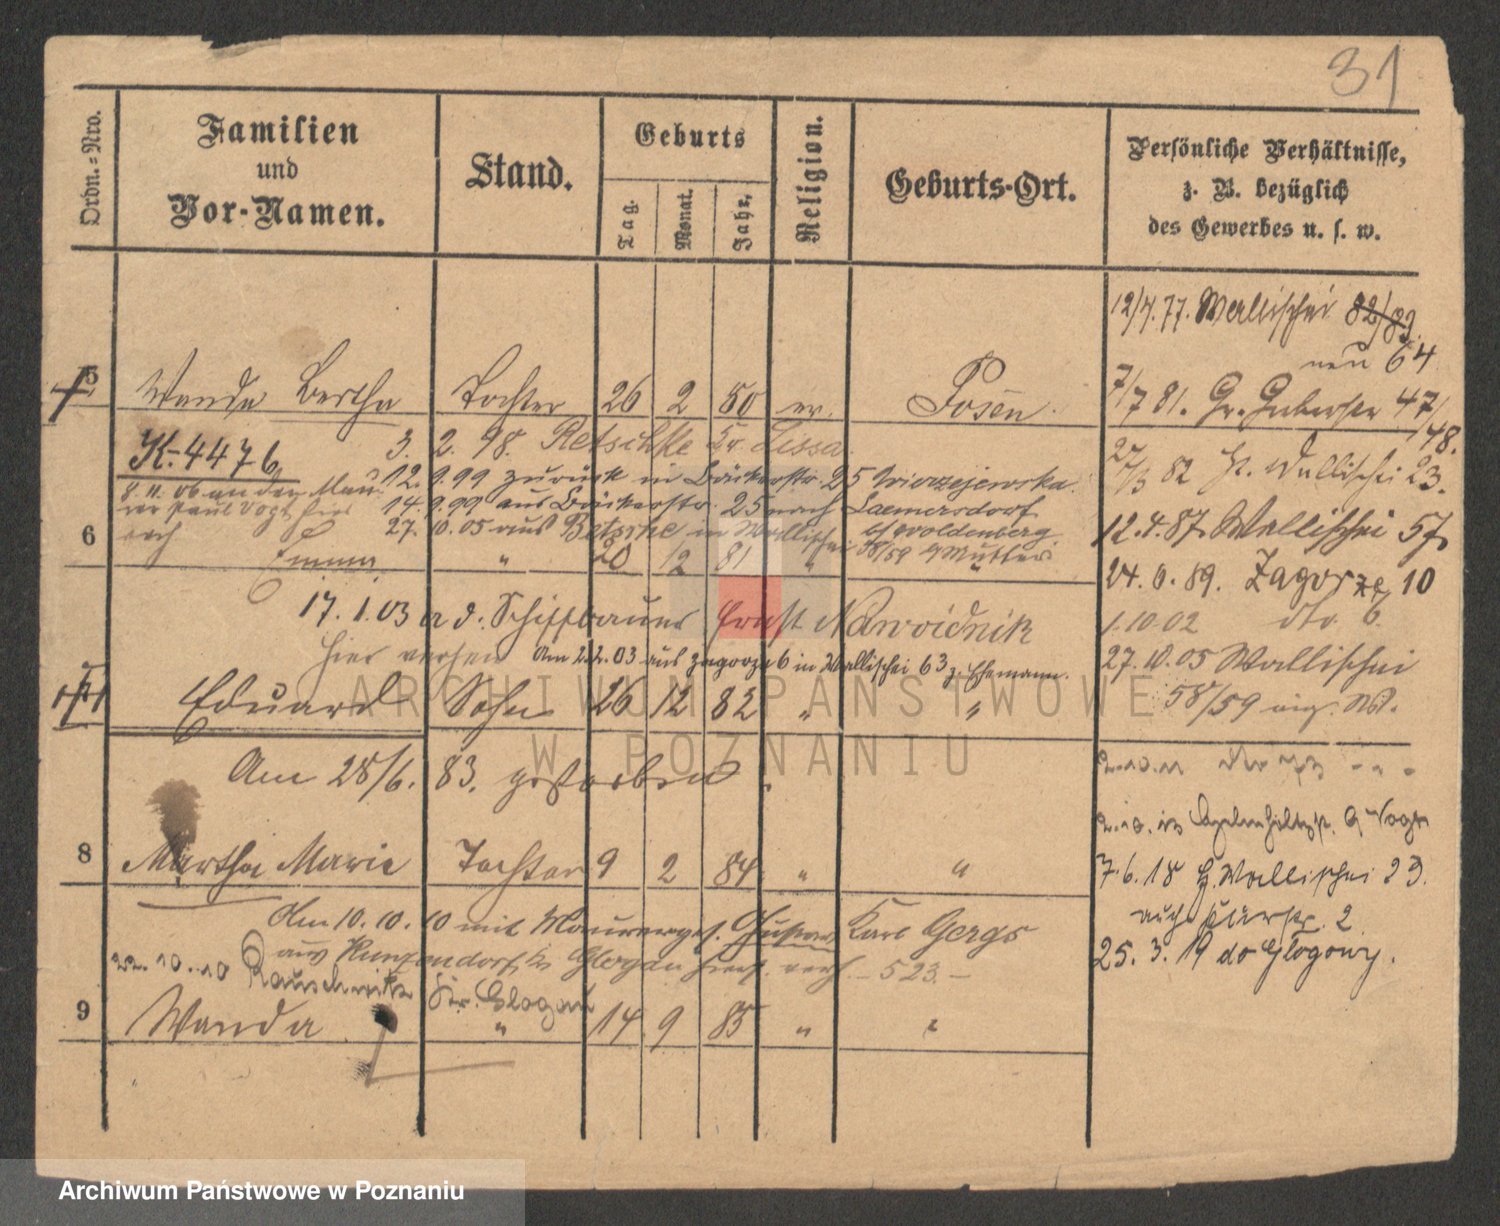 31
Ordn.=Nro.
Familien
und
Vor-Namen.
Stand.
Geburts
Tag.
Monat.
Jahr.
Religion.
Geburts-Ort.
Persönliche Verhältnisse,
z. B. bezüglich
des Gewerbes u. s. w.
12/4.77. Wallischei 82/83
neu 64
5 Wanda Bertha Tochter 26 2 80 ev. Posen.
7/7 81. Gr. Gerberstr 47/48.
K. 4476
3. 2. 98. Retschke Kr. Lissa
12. 9.99 zurück in Bäckerstr. 25 Wierzejewska.
27/3 82 H. Wallischei 23.
8.11.06 an den Mau
rer Paul Vogt hier
14. 9.99 aus Bäckerstr. 25 nach Laemersdorf
27. 10.05 aus Retschke in Wallischei 58/59 z. Mutter
12.4.87. Wallischei 57.
6 Emma " 20 12 81 " "
24.6.89. Zagorze 10
17.1.03 a d. Schiffbauer Ernst Nawoidnik
1.10.02 dto. 6
hier verh.
Am 2.2.03 aus Zagorze 6 in Wallischei 63 z. Ehemann.
27.10.05 Wallischei
58/59
Eduard Sohn 26 12 82 " "
Am 28/6. 83. gestorben.
2.10.11
8 Martha Marie Tochter 9 2 84 " "
7.6.18 H. Wallischei 23.
Am 10.10.10 mit Maurerges. Gustav Karl Gergs
2
aus Kunzendorf Kr. Glogau hier verh. - 523. -
25.3.19 do Glogowy.
22.10.10 Rauschwitz Kr. Glogau
9 Wanda " 14 9 85 " "
ARCHIWUM PAŃSTWOWE
W POZNANIU
Archiwum Państwowe w Poznaniu